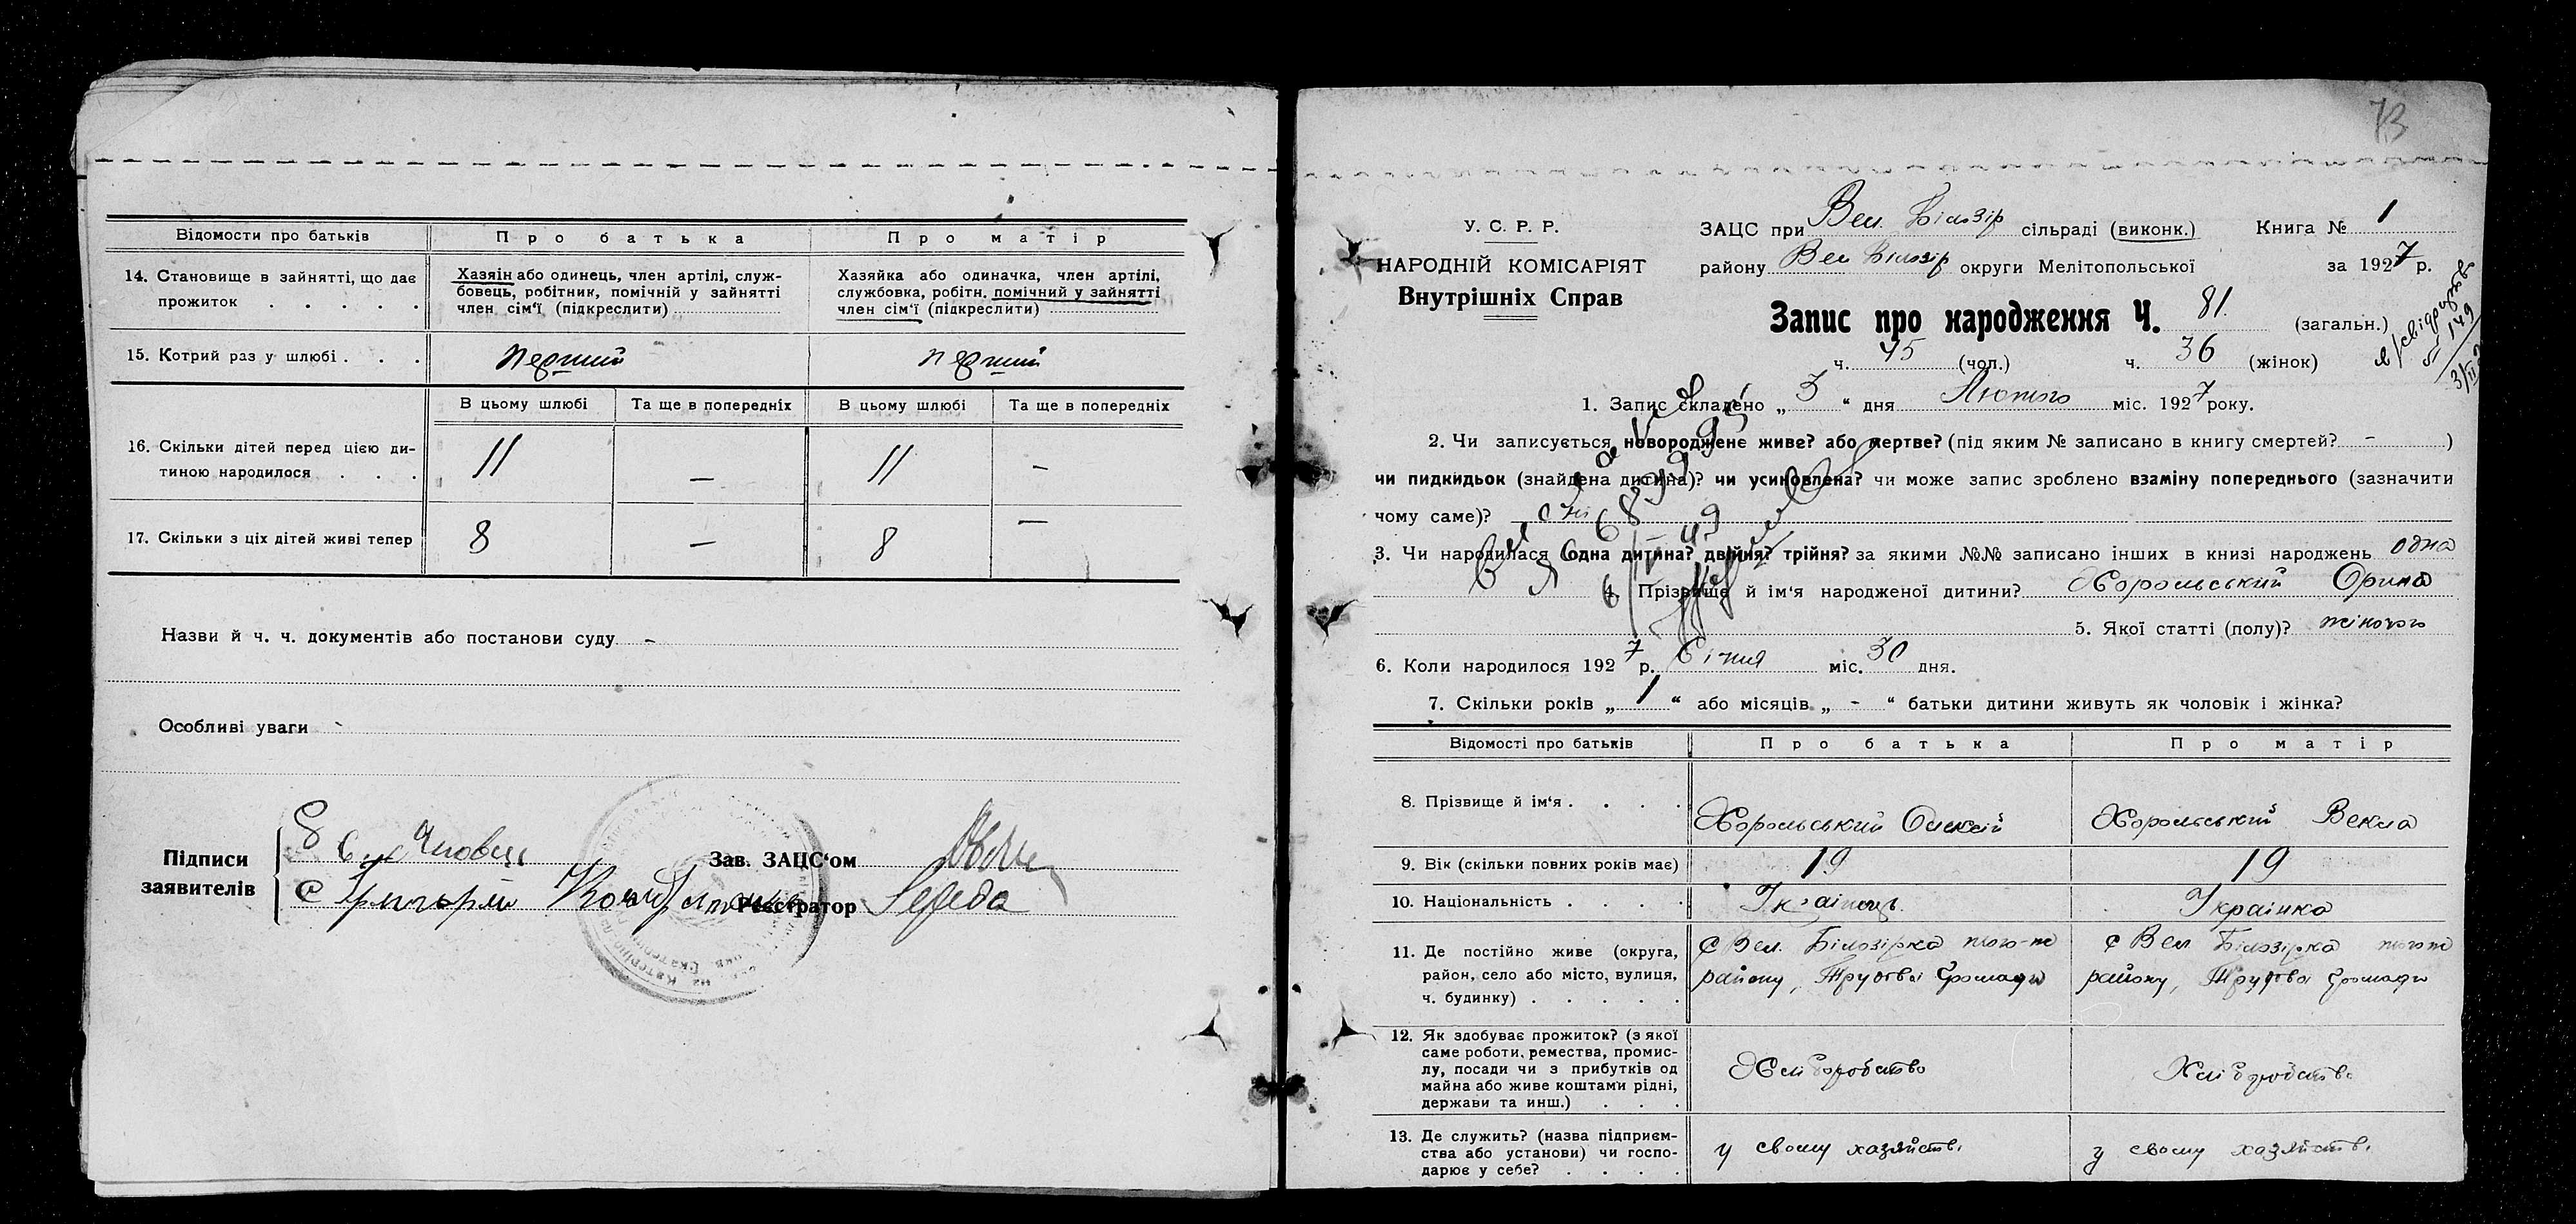 Відомости про батьків
Про батька
Про матір
14. Становище в зайнятті, що дає
прожиток . . . . .
Хазяін або одинець, член артілі, служ-
бовець, робітник, помічній у зайнятті
член сім'ї (підкреслити)
Хазяйка або одиначка, член артілі,
службовка, робітн. помічний у зайнятті
член сім'ї (підкреслити)
15. Котрий раз у шлюбі . . .
перший
перший
В цьому шлюбі
Та ще в попередніх
В цьому шлюбі
Та ще в попередніх
16. Скільки дітей перед цією ди-
тиною народилося . . .
11
—
11
—
17. Скільки з ціх дітей живі тепер
8
—
8
—
Назви й ч. ч. документів або постанови суду -
Особливі уваги
Підписи
заявителів
Зав. ЗАЦС'ом
Григорій
Реєстратор Середа
73
У. С. Р. Р.
НАРОДНІЙ КОМІСАРІЯТ
Внутрішніх Справ
ЗАЦС при Вел. Білозір сільраді (виконк.) Книга № 1
району Вел Білозір округи Мелітопольської за 1927 р.
Запис про народження Ч. 81. (загальн.)
ч. 45 (чол.) ч. 36 (жінок)
149
1. Запис складено „ 3 “ дня Лютого міс. 1927 року.
2. Чи записується новороджене живе? або мертве? (під яким № записано в книгу смертей? - )
чи пидкидьок (знайдена дитина)? чи усиновлена? чи може запис зроблено взаміну попереднього (зазначити
чому саме)?
3. Чи народилася одна дитина? двійня? трійня? за якими №№ записано інших в книзі народжень одна
4. Прізвище й ім'я народженої дитини? Хорольський Орина
5. Якої статті (полу)? жіночого
6. Коли народилося 1927 р. Січня міс. 30 дня.
7. Скільки років „ 1 “ або місяців „ - “ батьки дитини живуть як чоловік і жінка?
Відомості про батьків
Про батька
Про матір
8. Прізвище й ім'я . . . .
Хорольський Олексій
Хорольський Векла
9. Вік (скільки повних років має)
19
19
10. Національність . . . .
Українець
Українка
11. Де постійно живе (округа,
район, село або місто, вулиця,
ч. будинку) . . . . .
с Вел. Білозірка того-ж
району, Трудова громада
с Вел Білозірка того ж
району, Трудова громада
12. Як здобуває прожиток? (з якої
саме роботи, ремества, промис-
лу, посади чи з прибутків од
майна або живе коштами рідні,
держави та инш.) . . .
Хліборобство
Хліборобство
13. Де служить? (назва підприєм-
ства або установи) чи госпо-
дарює у себе? . . . .
у свому хазяйстві
у свому хазяйстві